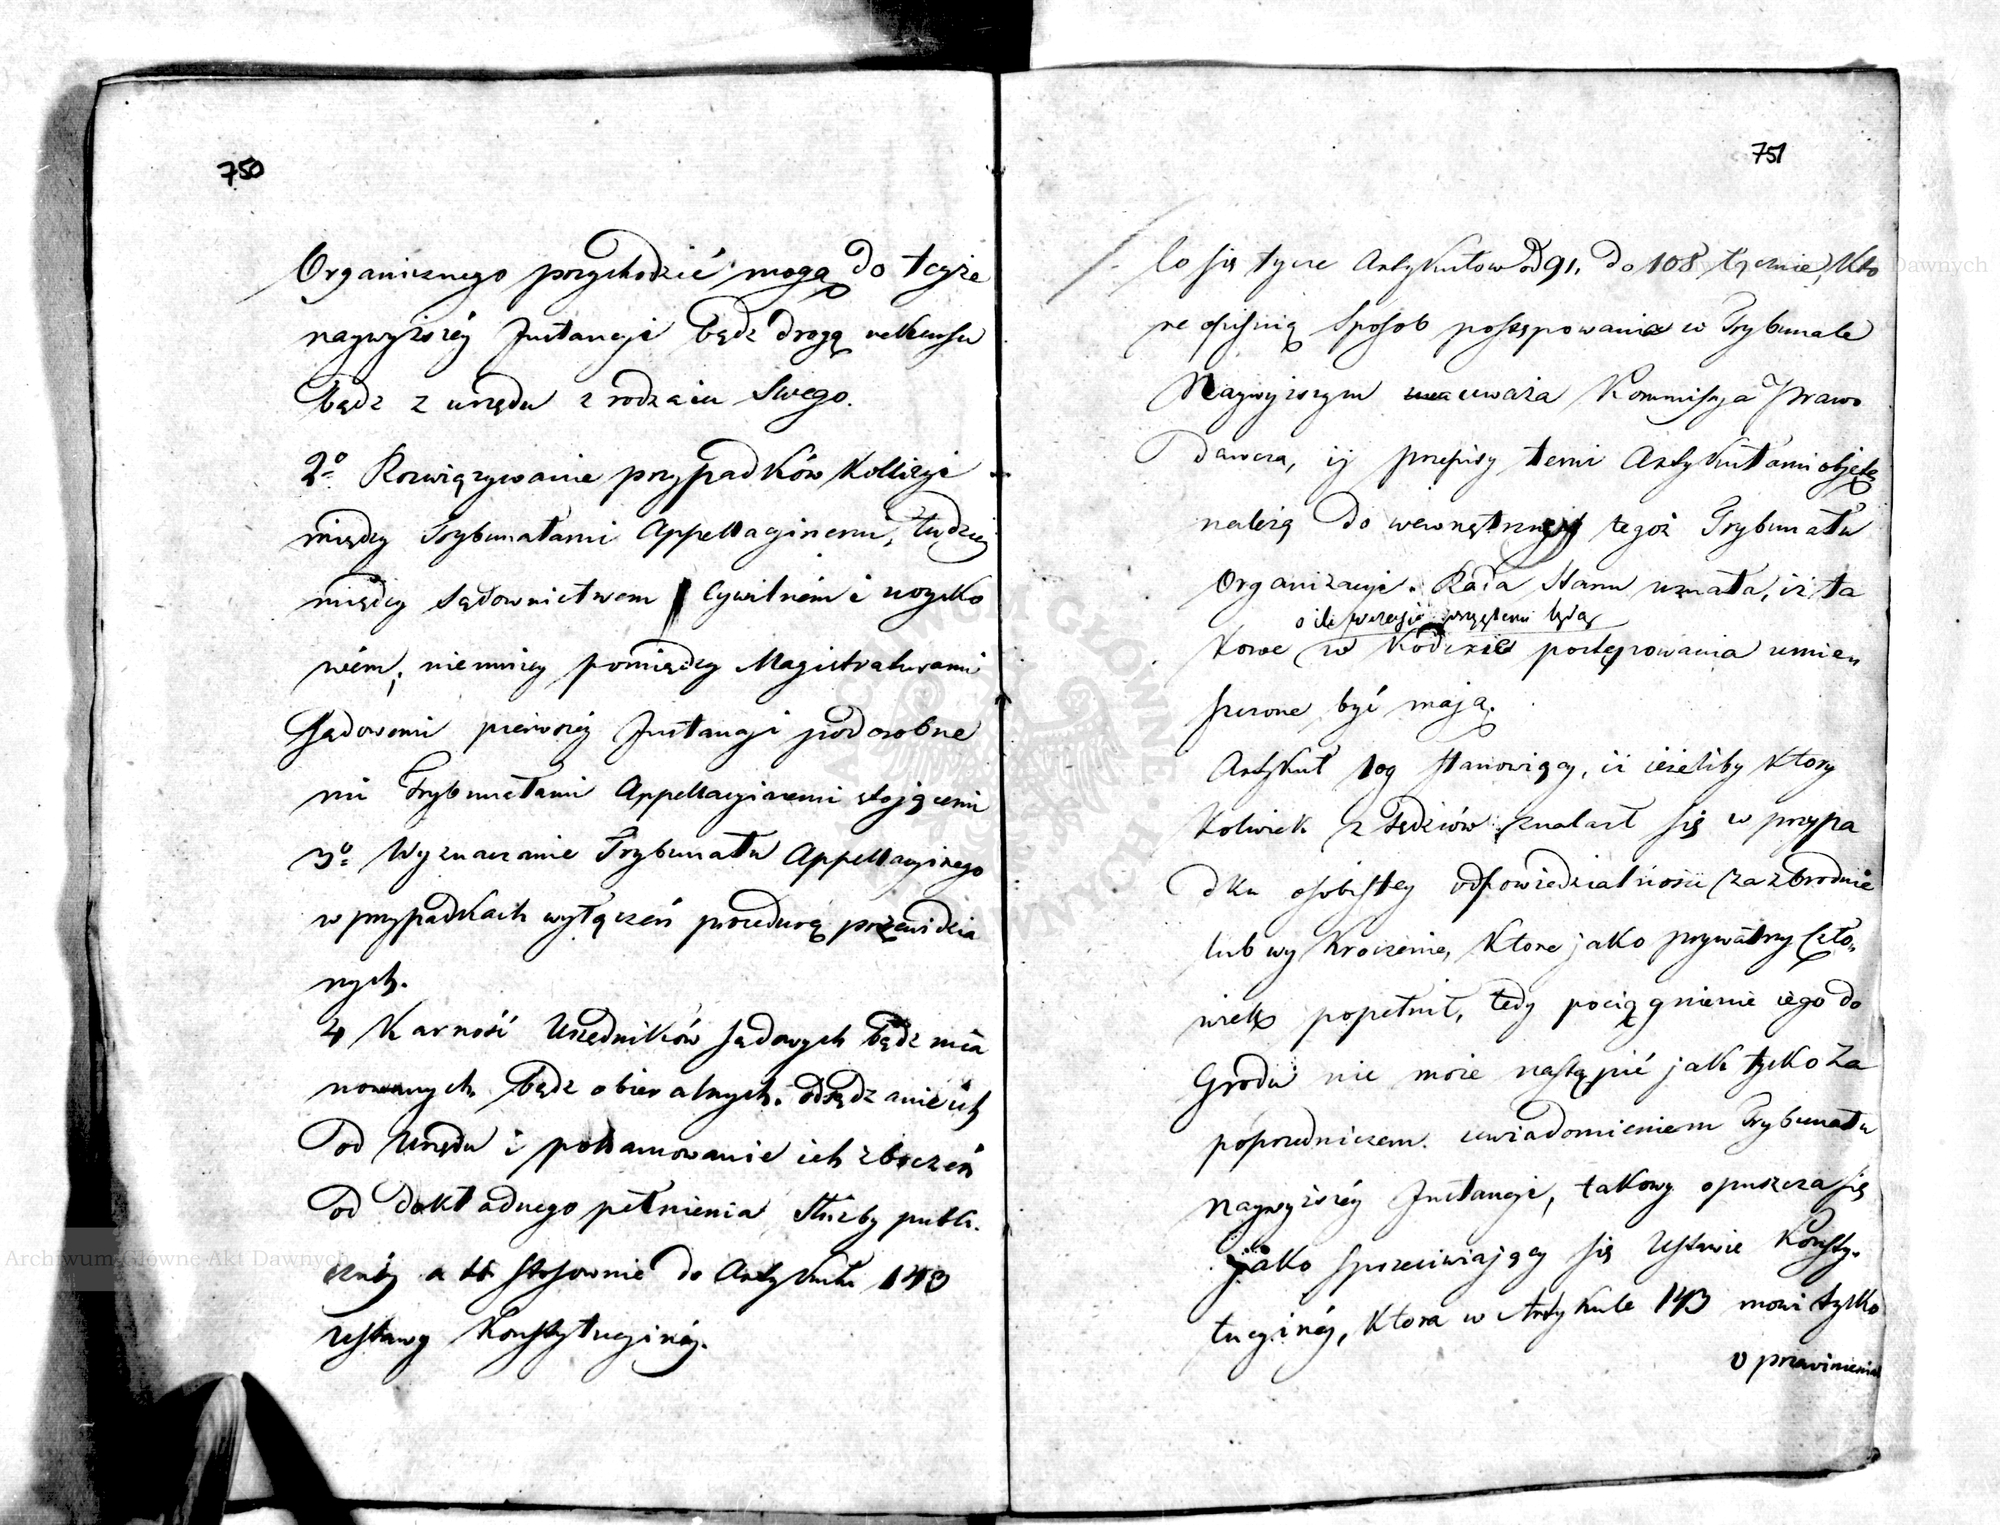 750
Organicznego przychodzić mogą do teyże
naywyższéy Instancyi bądz drogą rekursu
bądz z urzędu z rodzaiu Swego.
2o Rozwiązywanie przypadków Kollizyi
między Trybunałami Appellacyinemi, tudzież
między Sądownictwem Cywilném i woysko
wém, niemniey pomiędzy Magistraturami
Sądowemi pierwszéy Instancyi pod osobne
mi Trybunałami Appellacyinemi stojącemi
3o Wyznaczanie Trybunału Appellacyinego
w przypadkach wyłączeń procedurą przewidzia
nych.
4 Karność Urzędników Sądowych bądz mia
nowanych, bądz obieralnych. odsądzanie ich
od Urzędu i pohamowanie ich zboczeń
od dokładnego pełnienia służby publi.
cznéy a to stosownie do Artykułu 143
Ustawy Konstytucyinéy.
751
Co się tycze Artykułów od 91. do 108 łącznie, któ
re opisuią sposob postępowania w Trybunale
Naywyższym uważa Kommissya Prawo
dawcza, iż przepisy temi Artykułami objęte
należą do wewnętrznéy tegoż Trybunału
Organizacyi. Rada Stanu uznała, iż ta
o ile przyięte będą
kowe w Kodexie postępowania umie
szczone być mają.
Artykuł 109 stanowiący, iż ieżeliby który
kolwiek z Sędziów znalazł się w przypa
dku osobistey odpowiedzialności za zbrodnie
lub wykroczenie, które jako prywatny Czło„
wiek popełnił, tedy pociągnienie iego do
Grodu nie może nastąpić jak tylko za
poprzedniczem uwiadomieniem Trybunału
naywyższéy Instancyi, takowy opuszcza się
jako sprzeciwiający się Ustawie Konsty„
tucyinéy, która w Artykule 143 mówi tylko
o przewinienia
Archiwum Główne Akt Dawnych